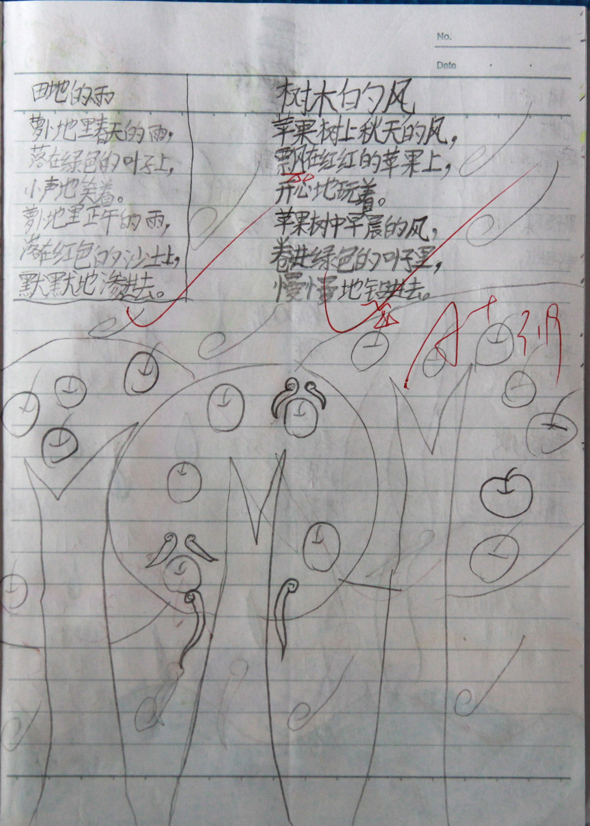 No.
Date
田地的雨
萝卜地里春天的雨，
落在绿色的叶子上，
小声地笑着。
萝卜地里正午的雨，
落在红色的沙土上，
默默地渗进去。
树木的风
苹果树上秋天的风，
飘在红红的苹果上，
开心地玩着。
苹果树中午晨的风，
卷进绿色的叶子里，
慢慢地钻进去。
A+